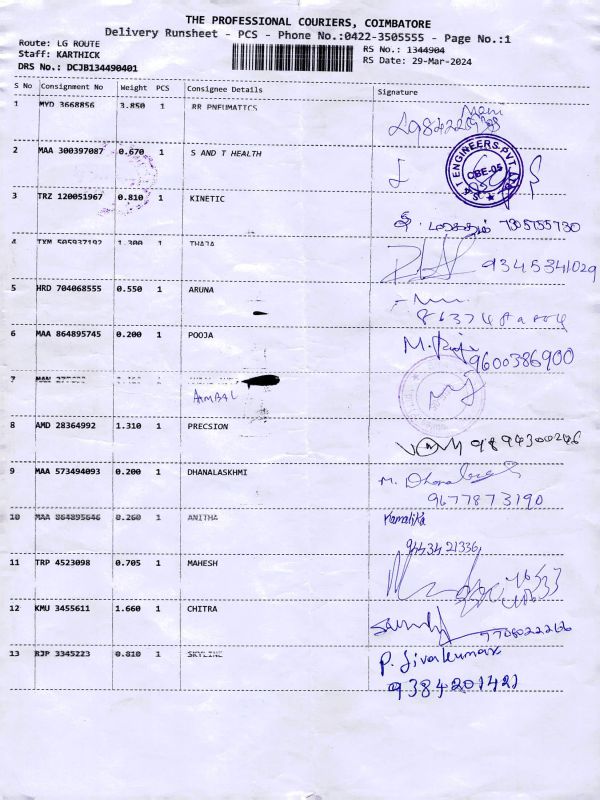 THE PROFESSIONAL COURIERS, COIMBATORE
Delivery Runsheet - PCS - Phone No.:0422-3505555 - Page No.:1
Route: LG ROUTE RS No.: 1344904
Staff: KARTHICK RS Date: 29-Mar-2024
DRS No.: DCJB134490401
S No Consignment No Weight PCS Consignee Details Signature
1 MYD 3668856 3.850 1 RR PNEUMATICS
Mani
2 MAA 300397087 0.670 1 S AND T HEALTH
S & T ENGINEERS PVT. LTD. CBE-05
3 TRZ 120051967 0.810 1 KINETIC
7305755730
4 TXM 505937192 1.300 1 THAJA
9345341029
5 HRD 704068555 0.550 1 ARUNA
6 MAA 864895745 0.200 1 POOJA
9600386900
7
AMBAL
8 AMD 28364992 1.310 1 PRECSION
9894300246
9 MAA 573494093 0.200 1 DHANALASKHMI
M. Dhanalaxmi
9677873190
10 MAA 864895646 0.260 1 ANITHA
Kamalika
9443421336
11 TRP 4523098 0.705 1 MAHESH
12 KMU 3455611 1.660 1 CHITRA
13 RJP 3345223 0.810 1 SKYLINE
P. Sivakumar
9384201421